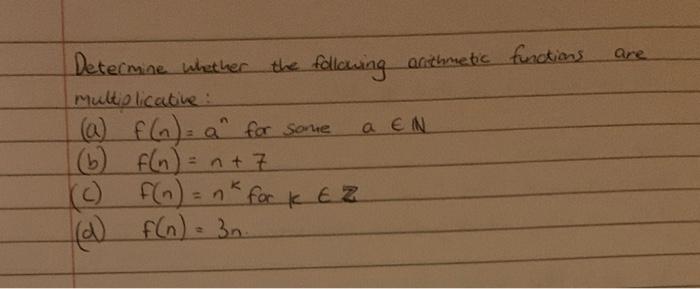 Determine whether the following arithmetic functions are
multiplicative:
(a) f(n) = aⁿ for some a ∈ ℕ
(b) f(n) = n + 7
(c) f(n) = nᵏ for k ∈ ℤ
(d) f(n) = 3n.